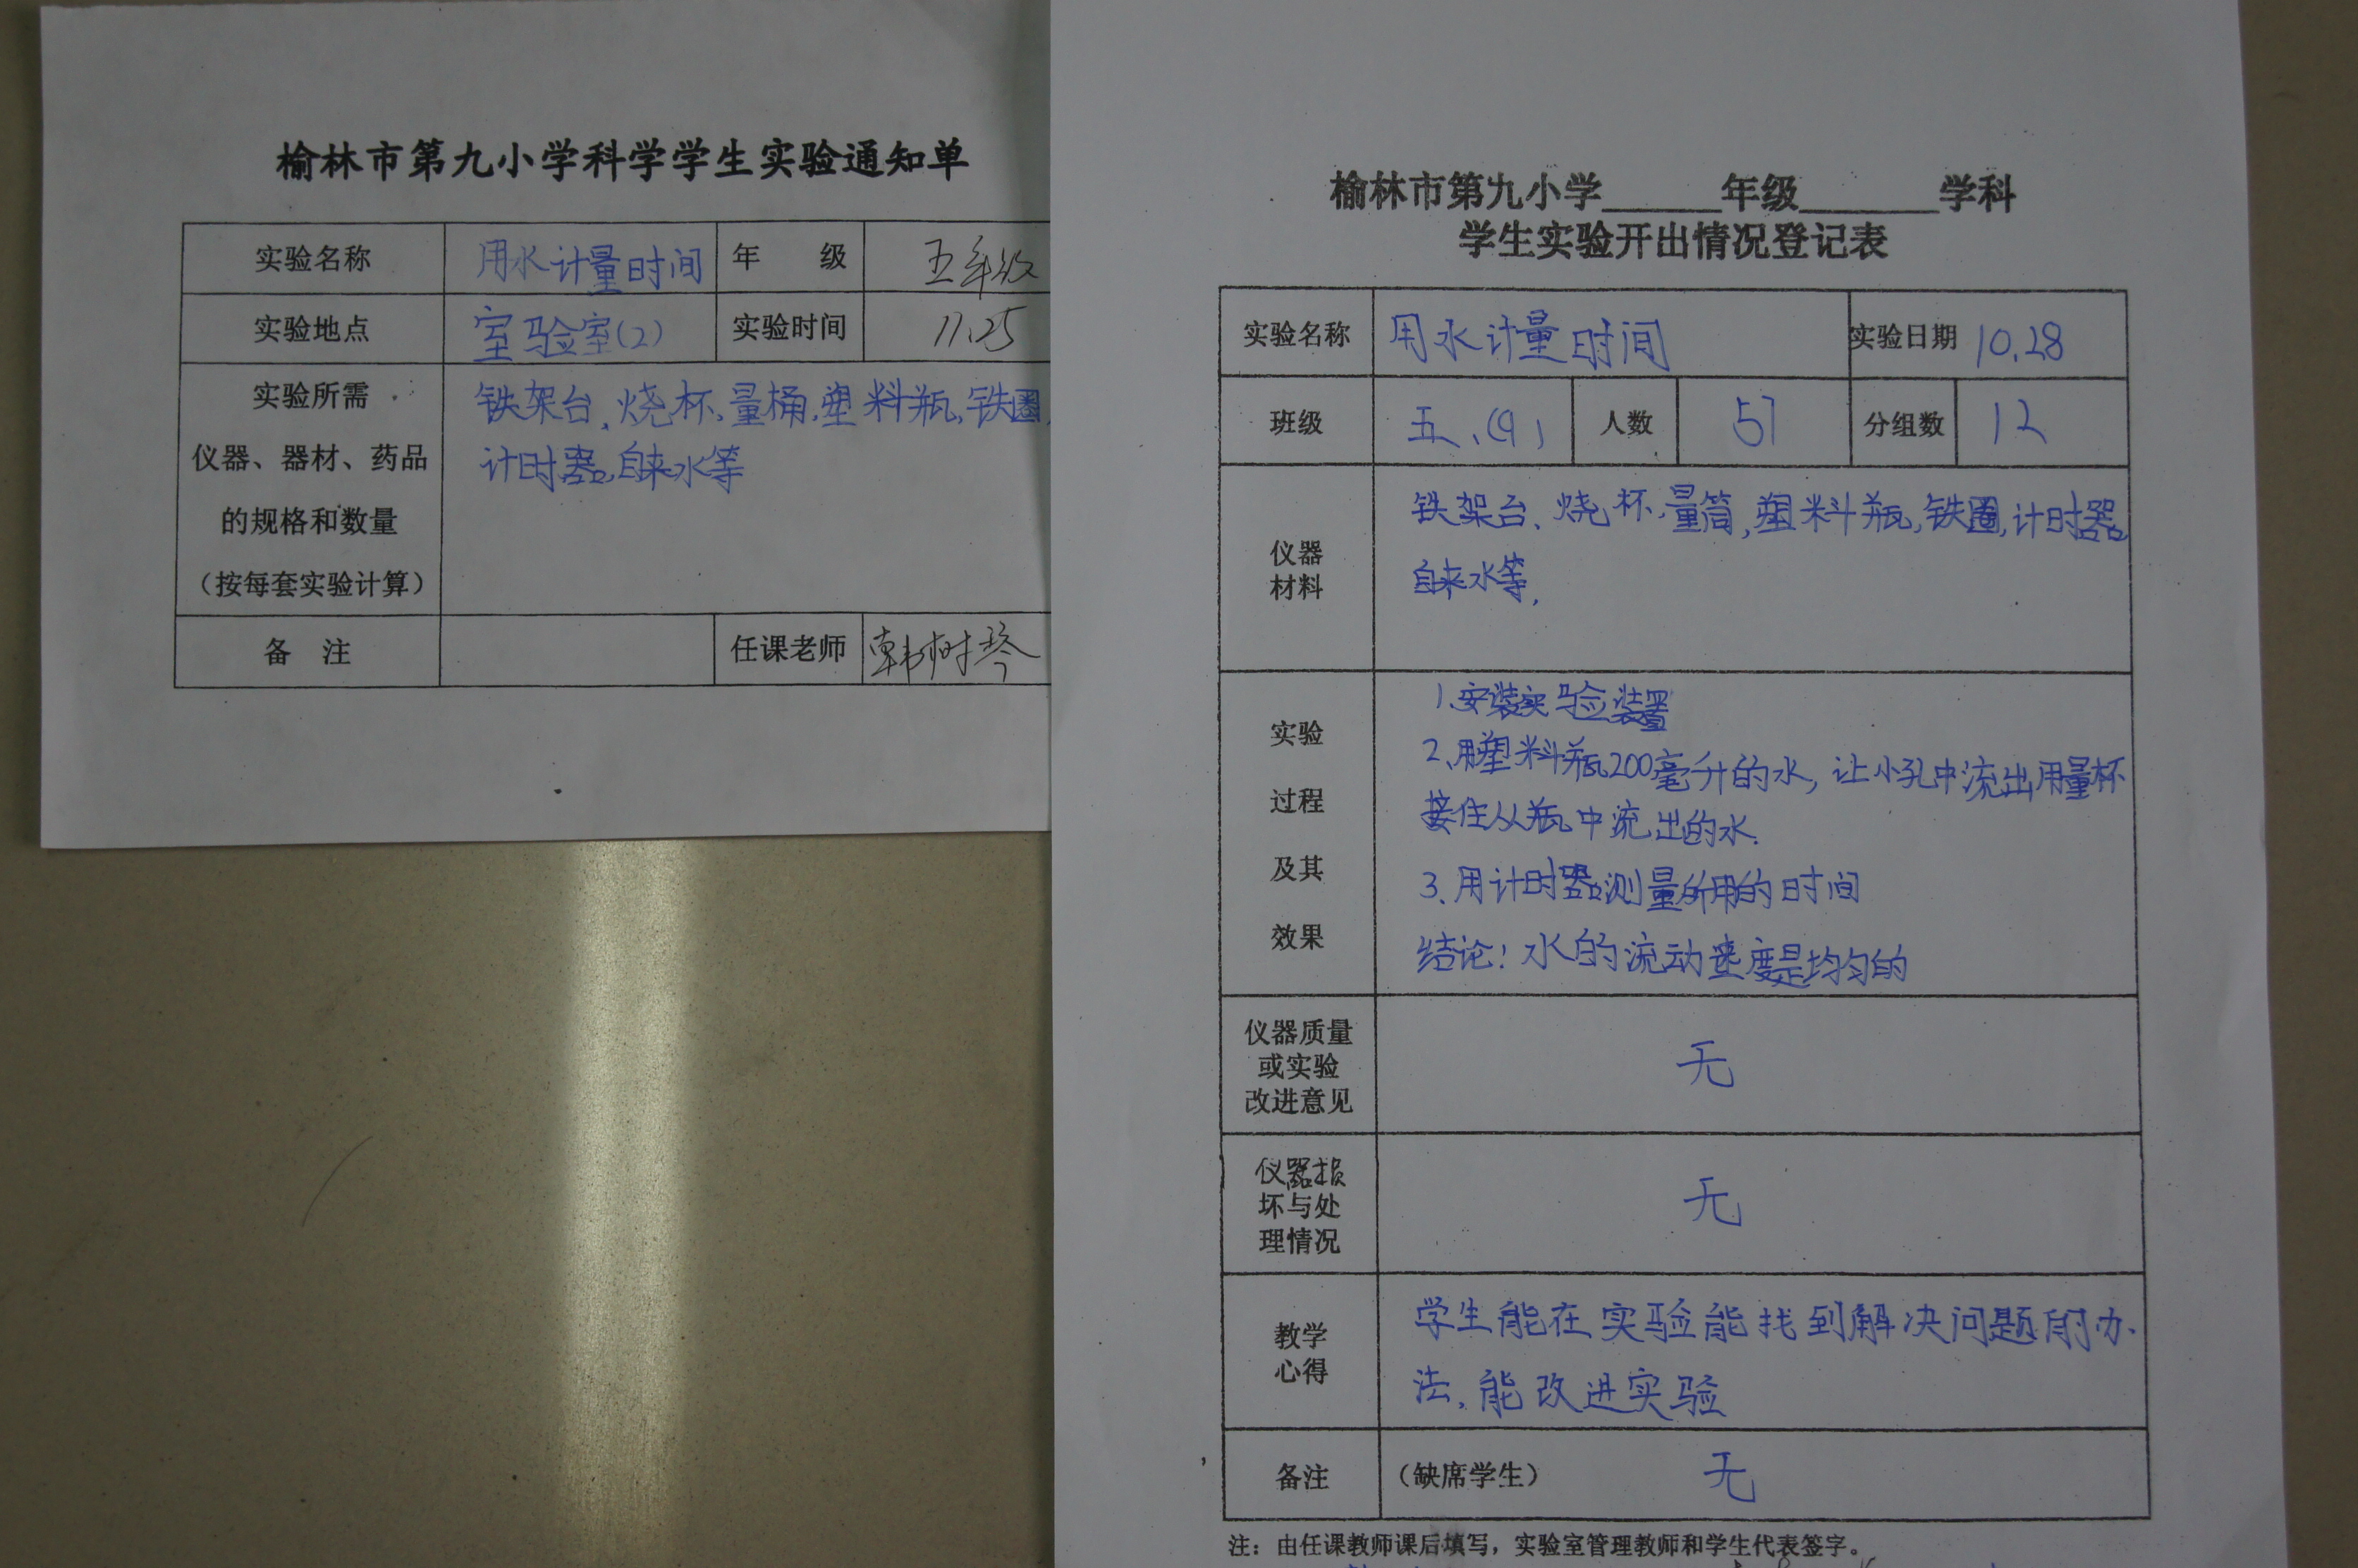 榆林市第九小学科学学生实验通知单
实验名称 用水计量时间 年 级 五年级
实验地点 室验室(2) 实验时间 11.25
实验所需
仪器、器材、药品
的规格和数量
(按每套实验计算)
铁架台,烧杯,量桶,塑料瓶,铁圈,
计时器,自来水等
备 注 任课老师 韩树琴
榆林市第九小学______年级_______学科
学生实验开出情况登记表
实验名称 用水计量时间 实验日期 10.28
班级 五、(9) 人数 57 分组数 12
仪器
材料
铁架台、烧杯,量筒,塑料瓶,铁圈,计时器
自来水等.
实验
过程
及其
效果
1、安装实验装置
2、用塑料瓶200毫升的水,让小孔中流出用量杯
接住从瓶中流出的水.
3、用计时器测量所用的时间
结论:水的流动速度是均匀的
仪器质量
或实验
改进意见
无
仪器损
坏与处
理情况
无
教学
心得
学生能在实验能找到解决问题的办
法,能改进实验
备注 (缺席学生) 无
注:由任课教师课后填写,实验室管理教师和学生代表签字。